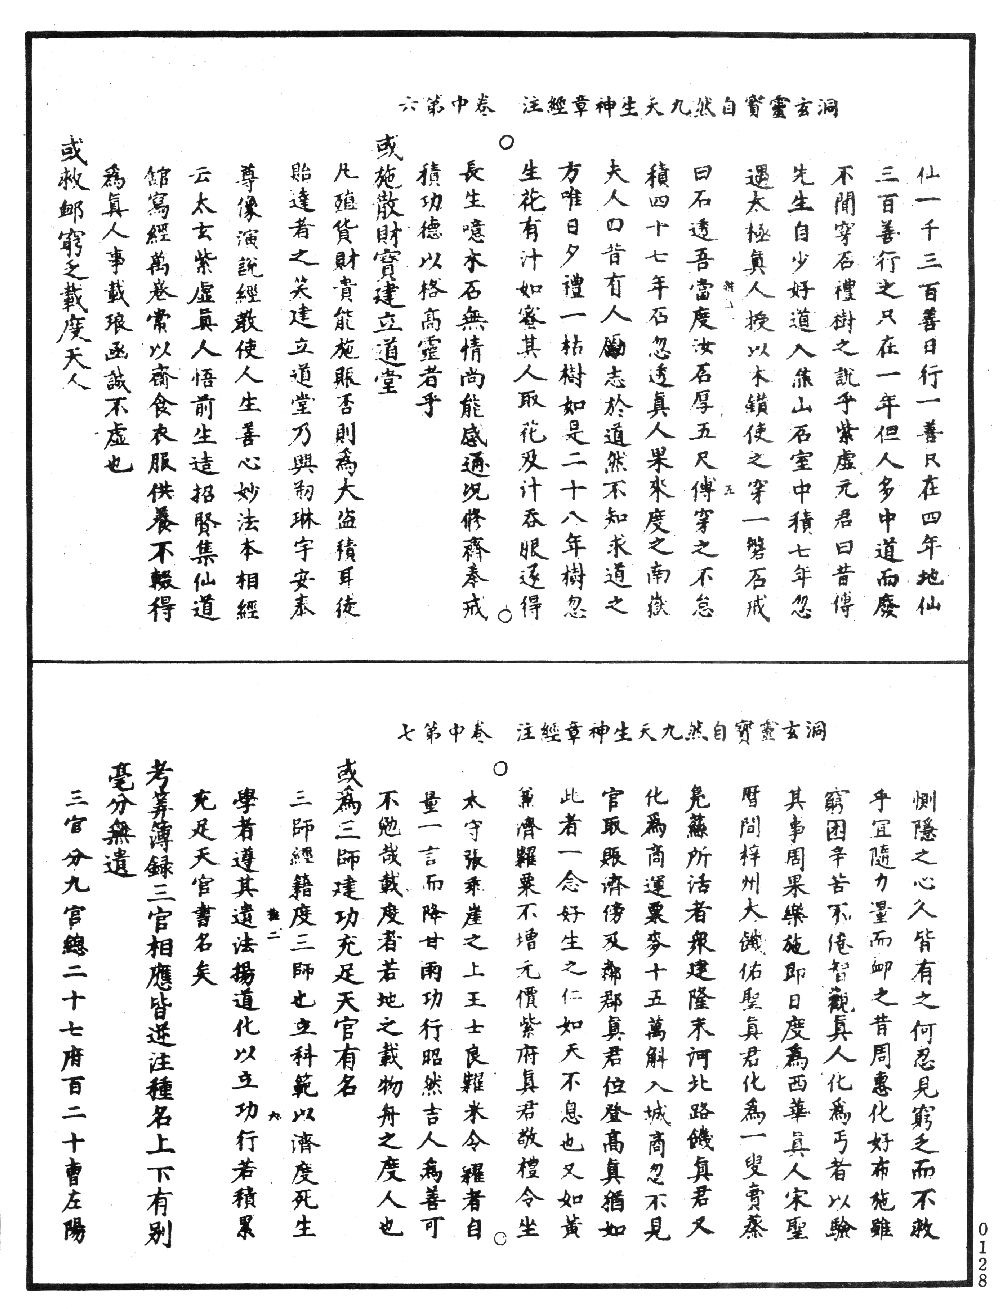 洞玄靈寶自然九天生神章經注　卷中第六
仙一千三百善日行一善只在四年地仙
三百善行之只在一年但人多中道而廢
不聞穿石禮樹之說乎紫虛元君曰昔傅
先生自少好道入焦山石室中積七年忽
遇太極真人授以木鑽使之穿一磐石戒
曰石透吾當度汝石厚五尺傅穿之不怠
積四十七年石忽透真人果來度之南嶽
夫人曰昔有人勵志於道然不知求道之
方唯日夕禮一枯樹如是二十八年樹忽
生花有汁如蜜其人取花及汁吞服遂得
長生噫木石無情尚能感通況修齋奉戒
積功德以格高靈者乎
或施散財寶建立道堂
凡殖貨財貴能施賑否則為大盜積耳徒
貽達者之笑建立道堂乃興剏琳宇安奉
尊像演說經教使人生善心妙法本相經
云太玄紫虛真人悟前生造招賢集仙道
館寫經萬卷常以齋食衣服供養不輟得
為真人事載琅函誠不虛也
或救卹窮乏載度天人
洞玄靈寶自然九天生神章經注　卷中第七
惻隱之心人皆有之何忍見窮乏而不救
乎宜隨力量而卹之昔周惠化好布施雖
窮困辛苦不倦智觀真人化為丐者以驗
其事周果樂施即日度為西華真人宋聖
曆間梓州大饑佑聖真君化為一叟賣蔡
免蘇所活者衆建隆末河北路饑真君又
化為商運粟麥十五萬斛入城商忽不見
官取賑濟傍及鄰郡真君位登高真猶如
此者一念好生之仁如天不息也又如黃
兼濟糶粟不增元價紫府真君敬禮令坐
太守張乖崖之上王士良糶米令糴者自
量一言而降甘雨功行昭然吉人為善可
不勉哉載度者若地之載物舟之度人也
或為三師建功充足天官有名
三師經籍度三師也立科範以濟度死生
學者遵其遺法揚道化以立功行若積累
充足天官書名矣
考筭簿録三官相應皆逆注種名上下有別
毫分無遺
三官分九宮總二十七府百二十曹左陽
0128